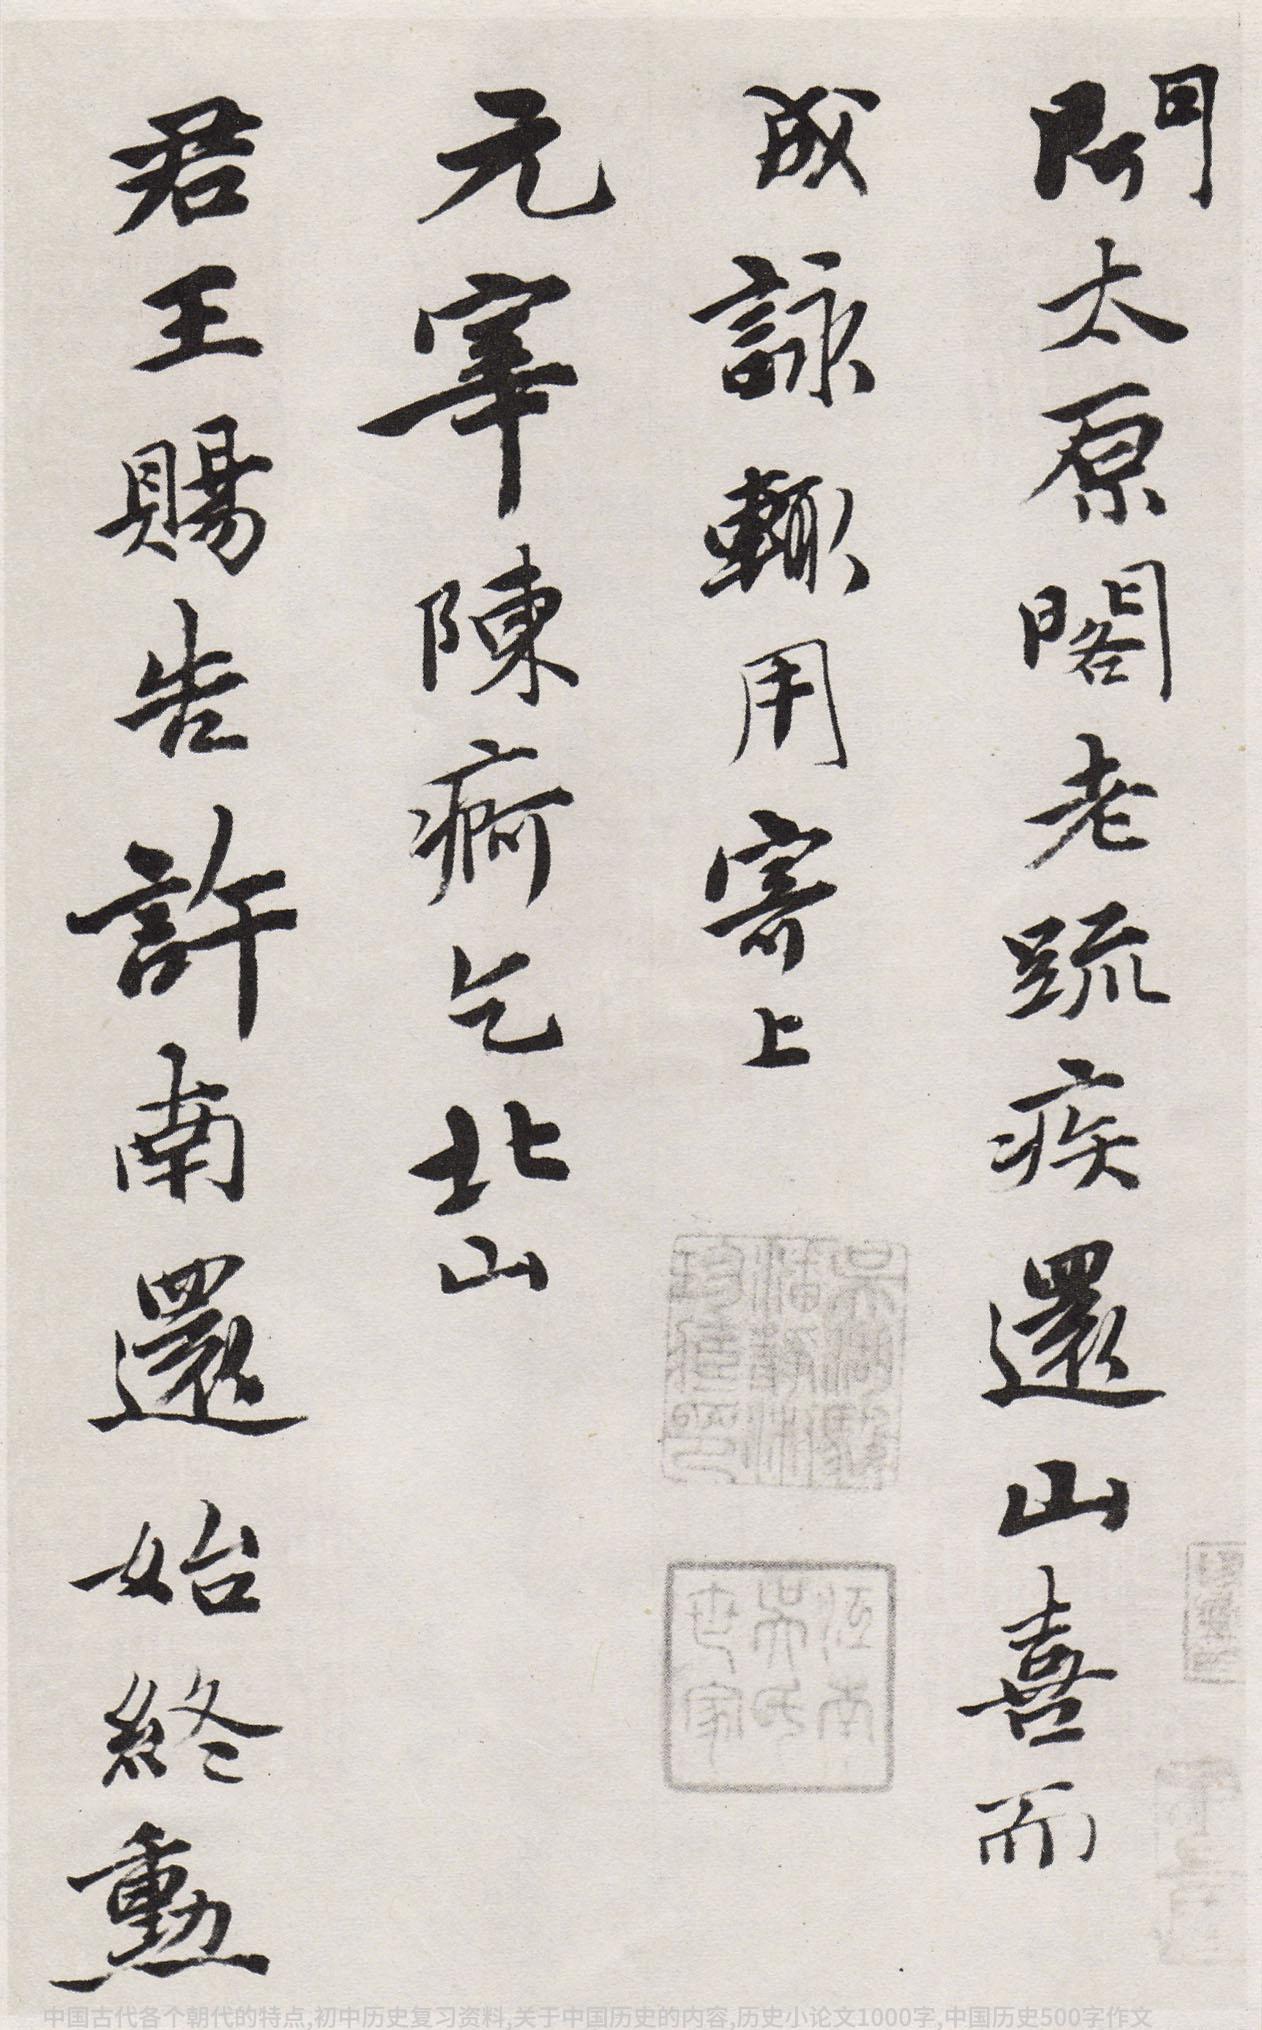 聞太原閣老疏疾還山喜而
成詠輙用寄上
元宰陳痾乞北山
君王賜告許南還始終勳
吳湖颿
潘靜淑
珍藏印
江南
吳氏
世家
中国古代各个朝代的特点,初中历史复习资料,关于中国历史的内容,历史小论文1000字,中国历史500字作文